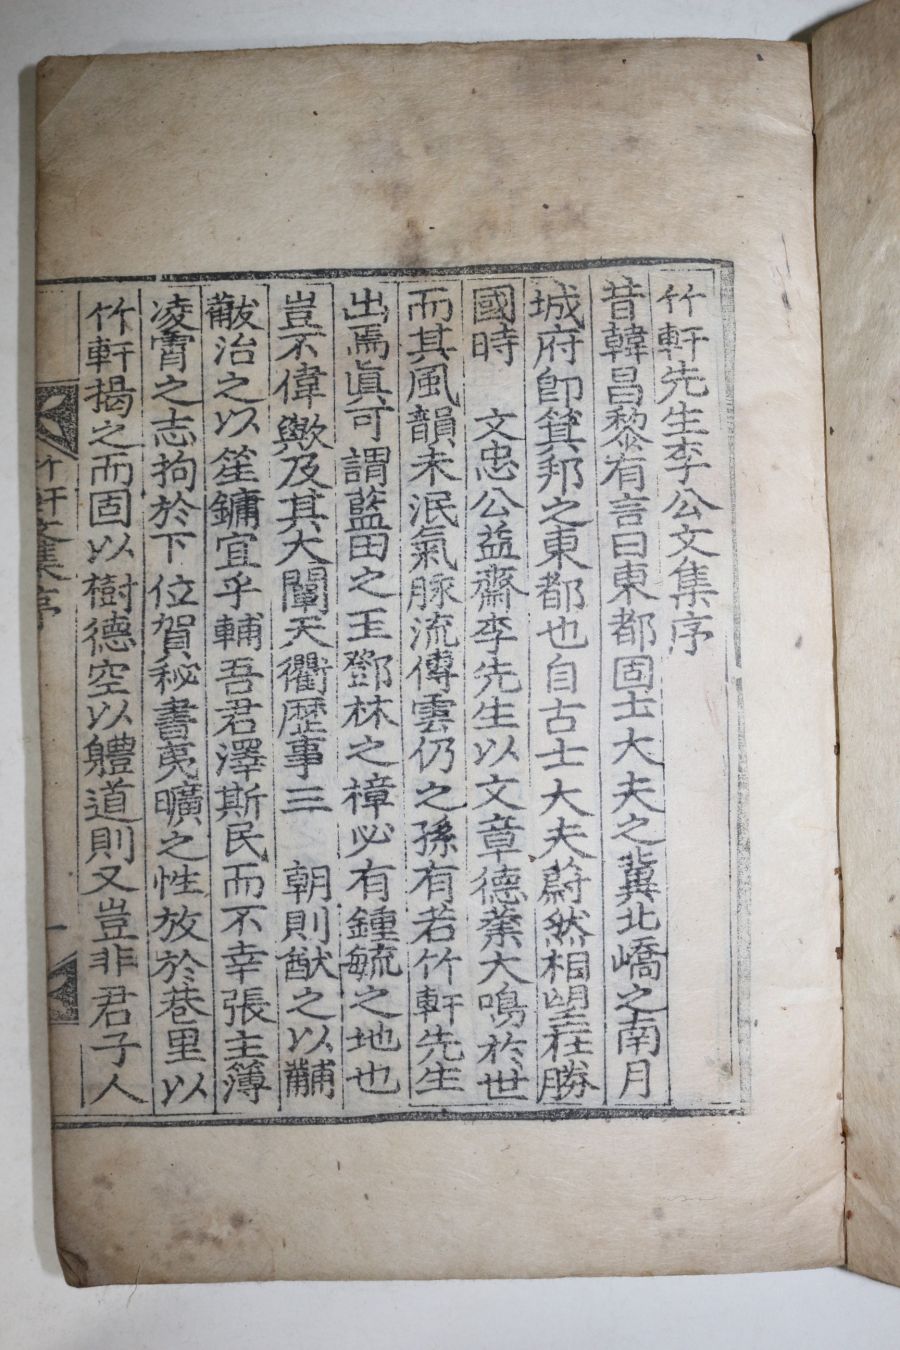 竹軒先生李公文集序
昔韓昌黎有言曰東都固士大夫之冀北嶠之南月
城府卽箕邦之東都也自古士大夫蔚然相望在勝
國時　文忠公益齋李先生以文章德業大鳴於世
而其風韻未泯氣脉流傳雲仍之孫有若竹軒先生
出焉眞可謂藍田之玉鄧林之樟必有鍾毓之地也
豈不偉歟及其大闡天衢歷事三　朝則猷之以黼
黻治之以笙鏞宜乎輔吾君澤斯民而不幸張主簿
凌霄之志拘於下位賀秘書夷曠之性放於巷里以
竹軒揭之而固以樹德空以體道則又豈非君子人
竹軒文集序
一